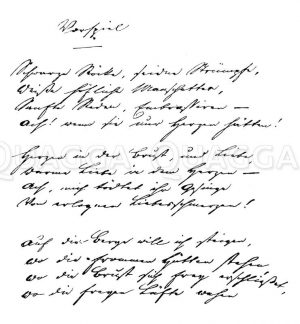 Vorspiel
Schwarze Röcke, seidne Strümpfe,
Weiße höfliche Manschetten,
Sanfte Reden, Embrassiren –
Ach! wenn sie nur Herzen hätten!
Herzen in der Brust, und Liebe,
Warme Liebe in dem Herzen –
Ach, mich tödtet ihr Gesinge
Von erlognen Liebesschmerzen!
Auf die Berge will ich steigen,
wo die frommen Hütten stehen,
wo die Brust sich frey erschließet,
wo die freyen Lüfte wehen
QUAGGA QUAGGA